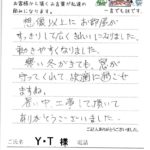 お客様から頂くお言葉が私達の
励みになります。
一言でも結構です。
想像以上にお部屋が
すっきりして広く使いになりました。
動きやすくなりました。
寒い冬がきても、窓が
守ってくれて快適に過ごせ
ますね。
暑い中工事して頂いて
ありがとうございました。
ご記入ありがとうございました。
ご氏名 Y・T 様 電話